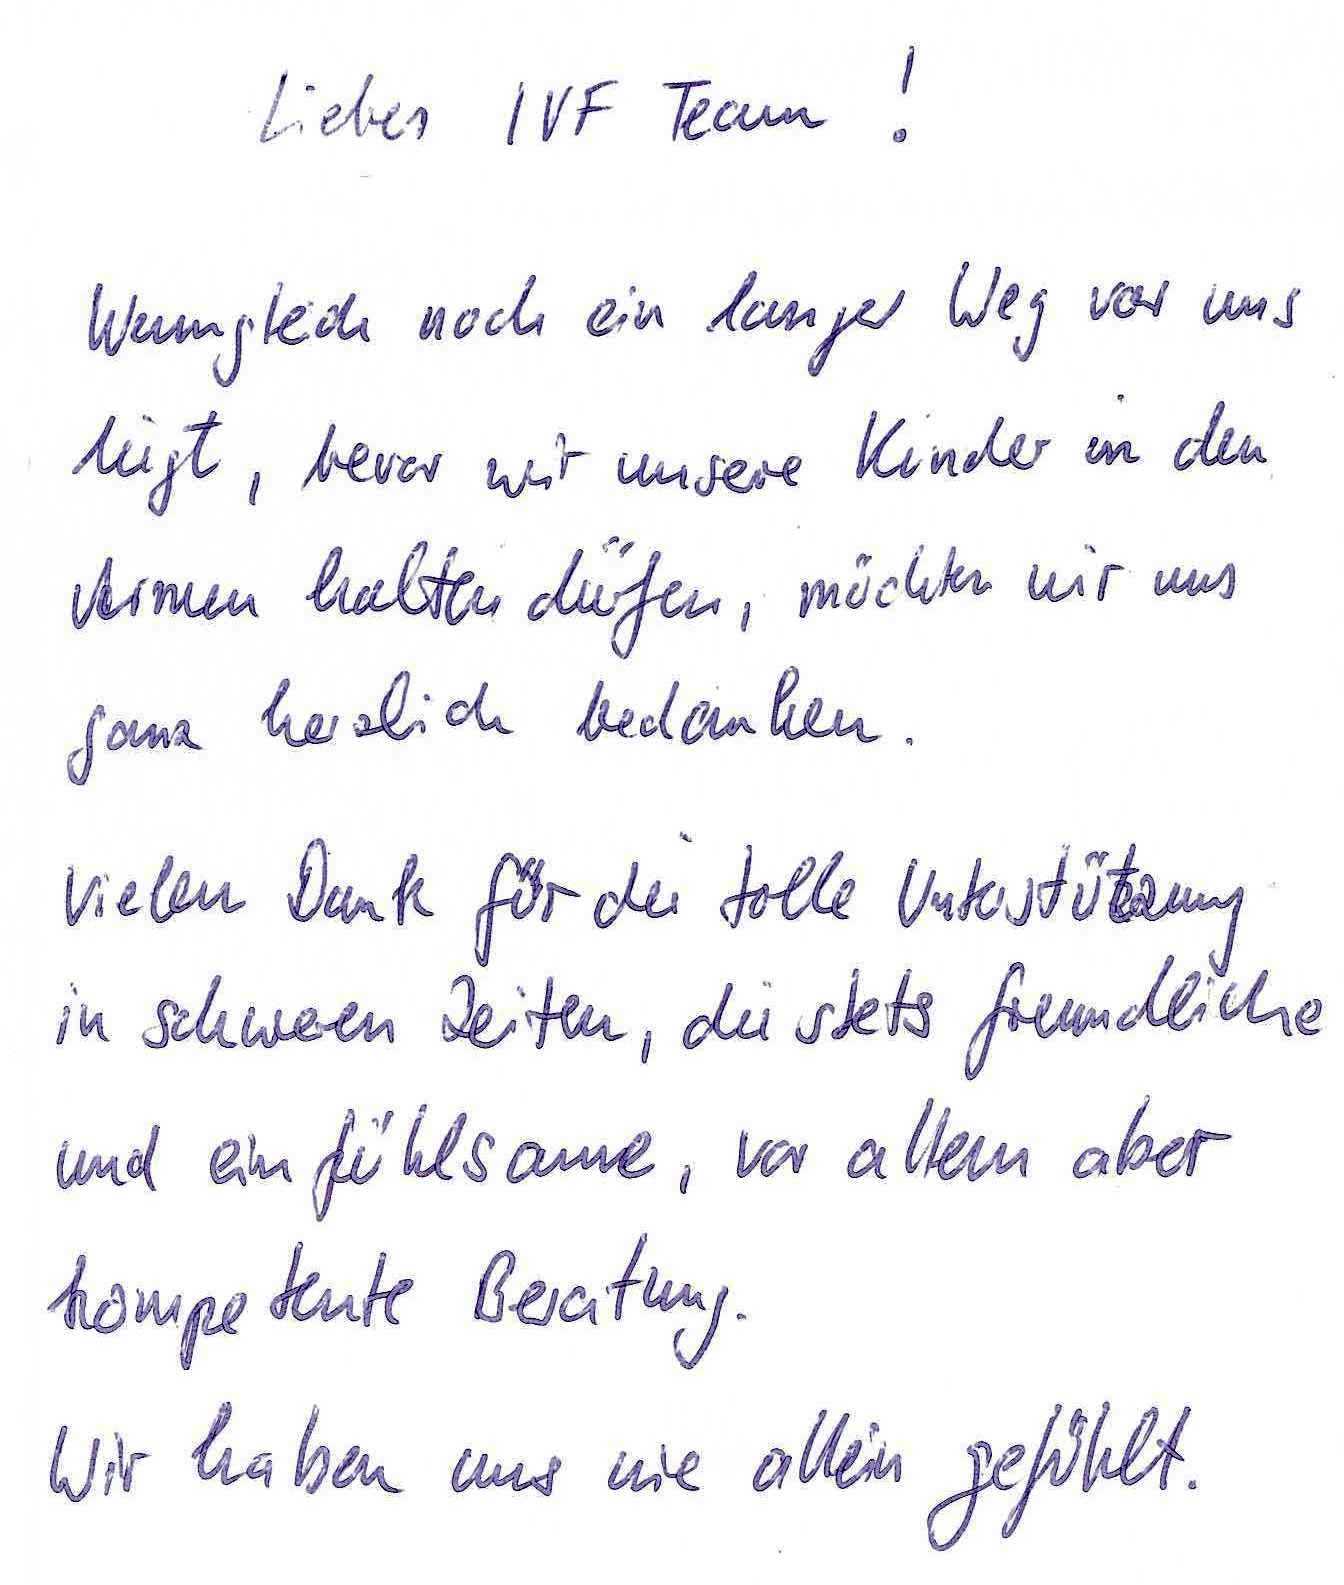 Liebes IVF Team !
Wenngleich noch ein langer Weg vor uns
liegt, bevor wir unsere Kinder in den
Armen halten dürfen, möchten wir uns
ganz herzlich bedanken.
Vielen Dank für die tolle Unterstützung
in schweren Zeiten, die stets freundliche
und einfühlsame, vor allem aber
kompetente Beratung.
Wir haben uns nie allein gefühlt.